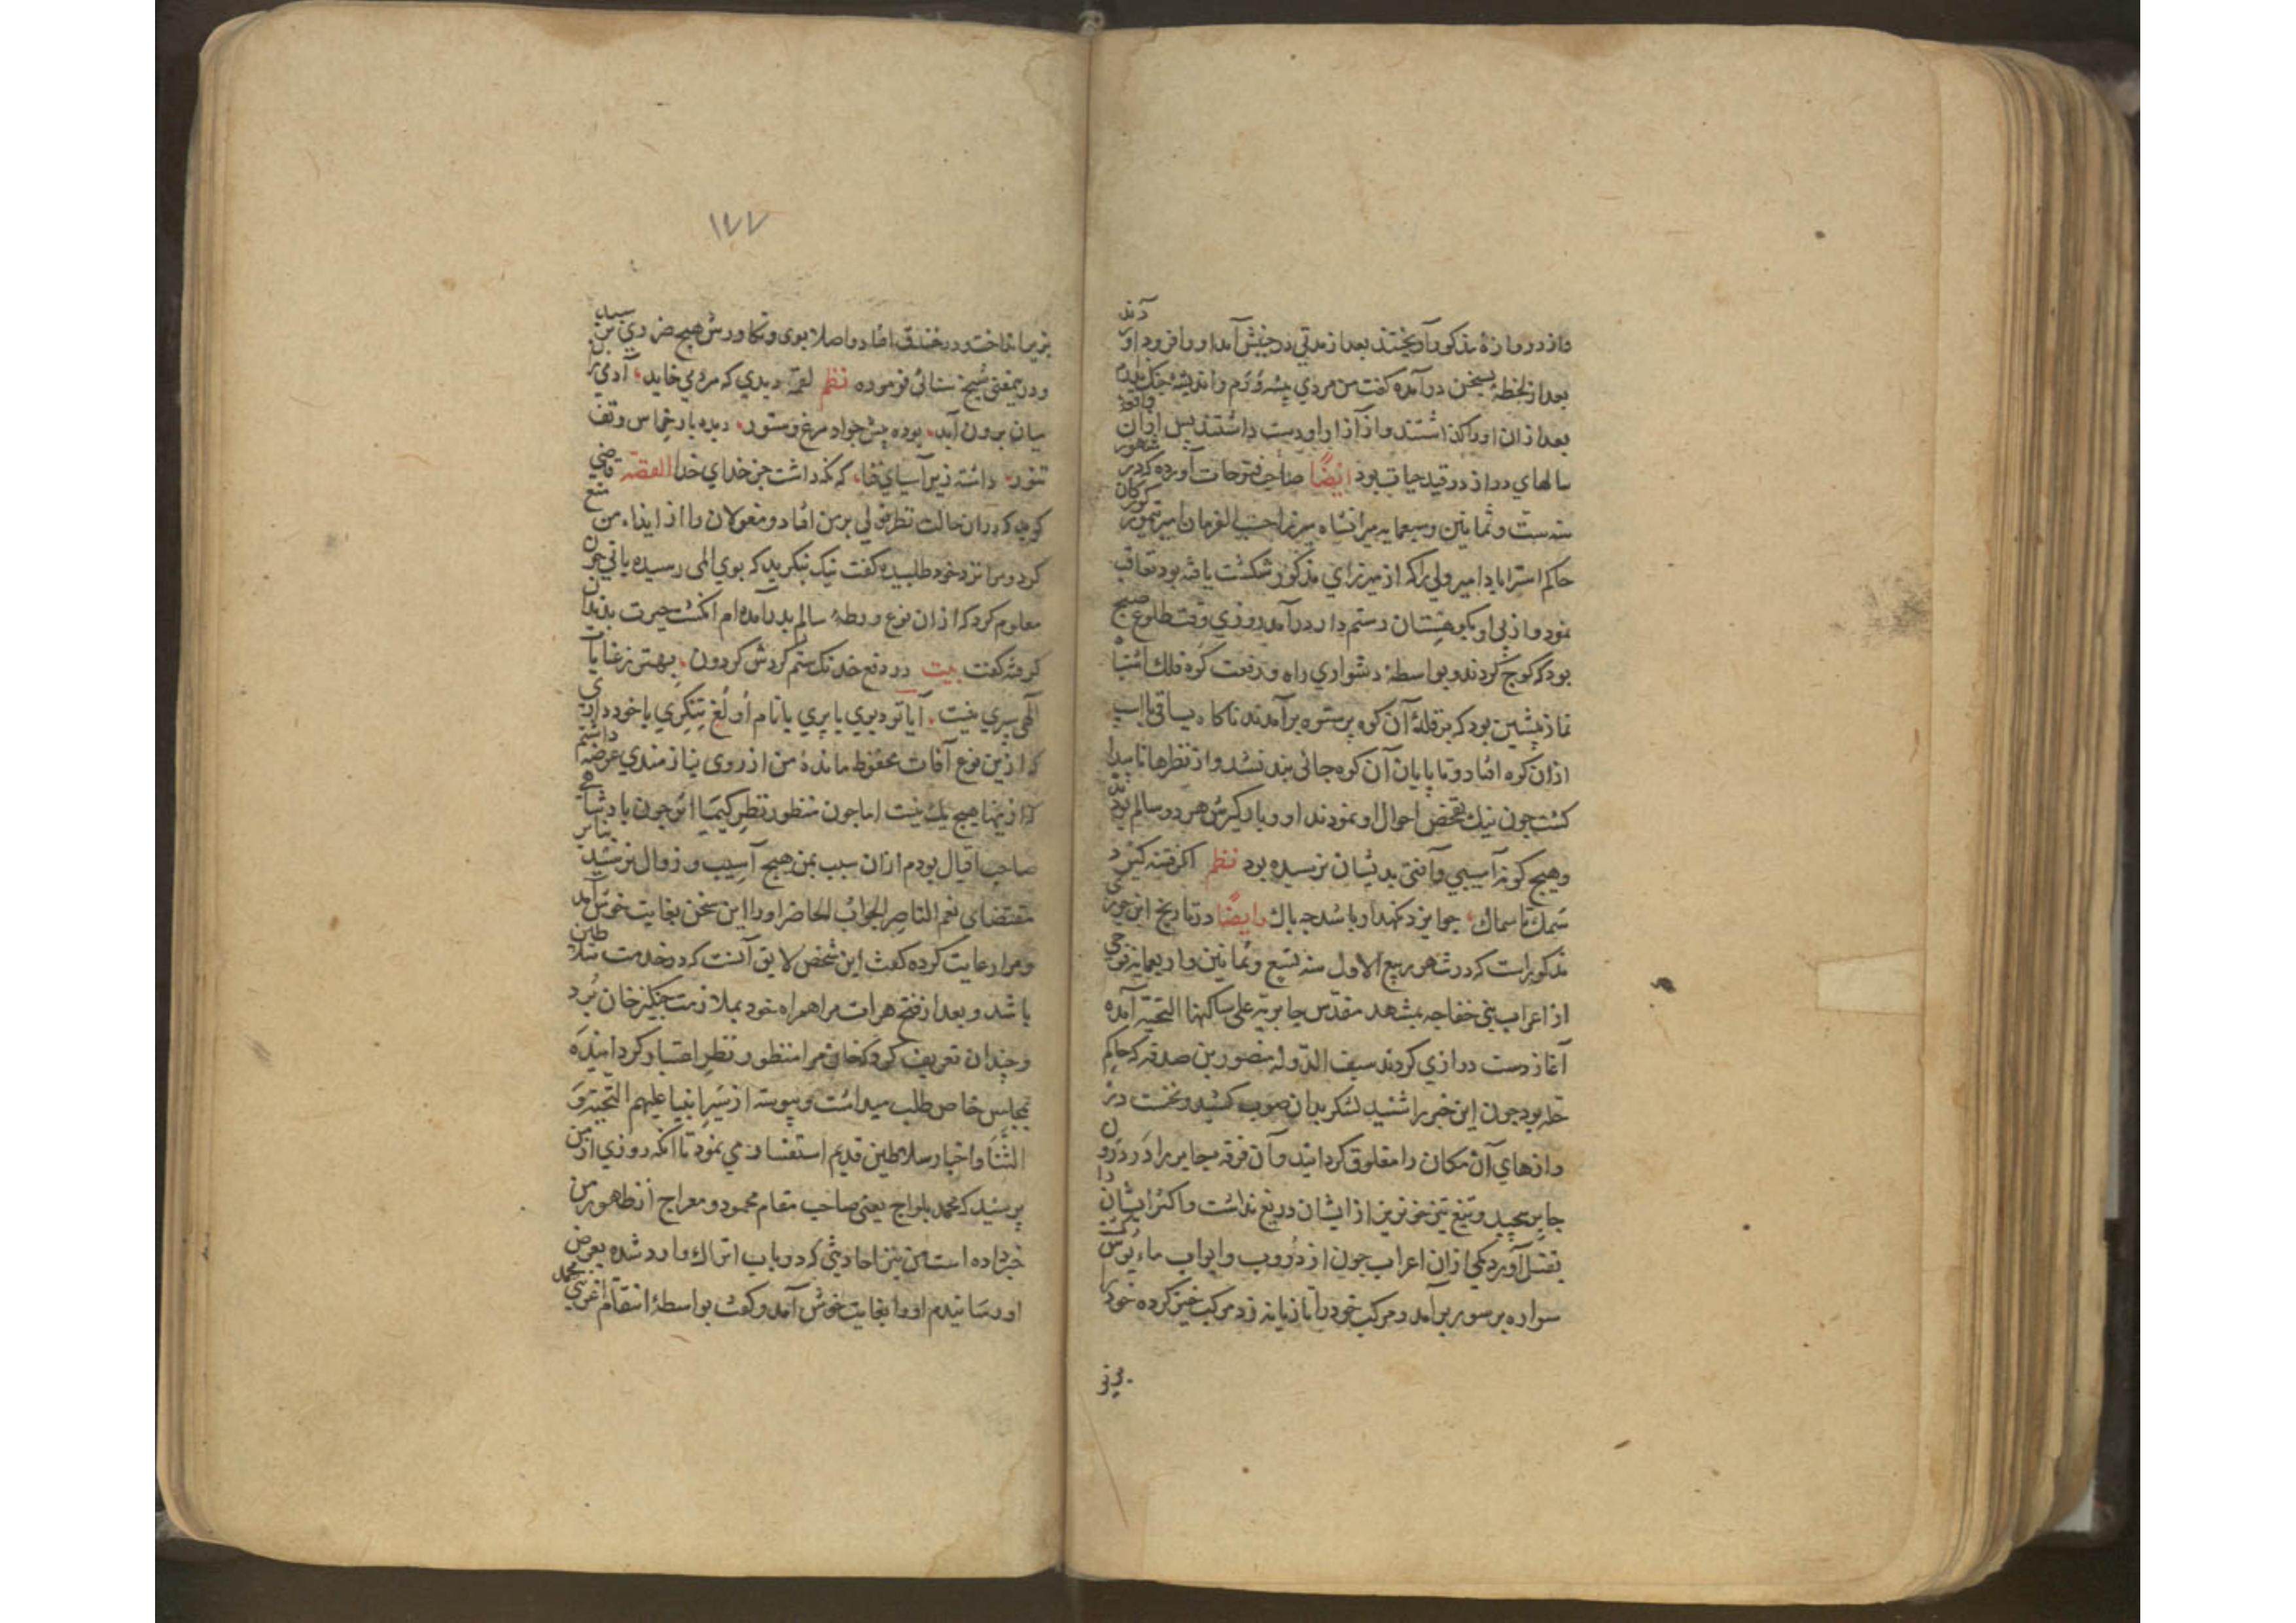 واز دروازهٔ مذکور آویختند بعد از مدتی در جنبش آمد او را فرود آوردند
بعد از لحظهٔ بسخن درآمده گفت من مردی پیشه ورم واندیشهٔ جنک ندارم
بعد از آن او را گذاشتند و از آزار او دست داشتند پس از آن واقعه
سالهای دراز در قید حیات بود ایضًا صاحب فتوحات آورده که در شهور
سنه ست وثمانین وسبعمایه میرانشاه میرزا حسب الفرمان امیر تیمور کورکان
حاکم استراباد امیر ولی را که از میرزای مذکور شکست یافته بود تعاقب
نمود و از پی او بکوهستان رستم دار درآمد روزی وقت طلوع صبح
بود که کوچ کردند و بواسطهٔ دشواری راه و رفعت کوه فلک اشتباه
نماز پیشین بود که بر قلهٔ آن کوه پرستوه برآمدند ناکاه یساقی با اسب
از آن کوه افتاد و تا پایان آن کوه جائی بند نشد و از نظرها ناپیدا
کشت چون نیک تفحص احوال او نمودند او و بارگیرش هر دو سالم بودند
و هیچ کونه آسیبی و آفتی بدیشان نرسیده بود نظم اکر فتنه کیرد
سمک تا سماک، چو ایزد نکهدار باشد چه باک وایضًا در تاریخ ابن جوزی
مذکور است که در شهر ربیع الاول سنه تسع وثمانین واربعمایه فوجی
از اعراب بنی خفاجه بمشهد مقدس جابریه علی ساکنها التحیة آمده
آغاز دست درازی کردند سیف الدوله منصور بن صدقه که حاکم
حله بود چون این خبر را شنید لشکر بدان صوب کشید و نخست در
وازهای آن مکان را مغلوق کردانید و آن فرقهٔ جابره را در درون
جابر پیچید و تیغ تیز خونریز از ایشان دریغ نداشت و اکثر ایشان را
بقتل آورد یکی از آن اعراب چون از دروب و ابواب مأیوس کشت
سواره بر سور برآمد و مرکب خود را تازیانه زد مرکب خیز کرده خود را
بزیر
بزیر انداخت و در خندق افتاد و اصلا بوی و تکاورش هیچ ضرری نرسید
و درین معنی شیخ سنائی فرموده نظم لقمهٔ دیدی که مرد می خاید، آدمی زان
میان برون آمد، بوده پیش جواد مرغ و ستور، دیده بار خراس و تف
تنور، داشته زیر آسیای قفا، که نکه داشت جز خدای خدا القصه قاضی
کوید که در آن حالت نظر تولی بر من افتاد و مغولان را از ایذاء من منع
کرد و مرا نزد خود طلبیده گفت نیک بنکرید که بوی المی رسیده یا نی چون
معلوم کرد که از آن نوع ورطهٔ سالم بدر آمده ام انکشت حیرت بدندان
کرفته گفت بیت در دفع خدنک ستم کردش کردون، بهتر ز عنایات
الهی سپری نیست، آیا تو دیوی یا پری یا نام اُولُغ تنکری با خود داری
که ازین نوع آفات محفوظ ماندهٔ من از روی نیازمندی عرضه داشتم
که ازینها هیچ یک نیست اما چون منظور نظر کیمیا اثر چون پادشاهی
صاحب اقبال بودم از آن سبب بمن هیچ آسیب و زوال نرسید بنابر
مقتضای نعم الناصر الجواب الحاضر او را این سخن بغایت خوش آمد
و مرا رعایت کرده گفت این شخص لایق آنست که در خدمت سلاطین
باشد و بعد از فتح هرات مرا همراه خود بملازمت چنکیز خان بُرد
و چندان تعریف کرد که خان مرا منظور نظر اعتبار کردانیده
بمجلس خاص طلب میداشت و پیوسته از سیر انبیا علیهم التحیة و
الثناء و اخبار سلاطین قدیم استفسار می نمود تا آنکه روزی از من
پرسید که محمد یلواج یعنی صاحب مقام محمود و معراج از ظهور من
خبر داده است من نیز احادیثی که در باب اتراک وارد شده بعرض
او رسانیدم او را بغایت خوش آمد و گفت بواسطهٔ انتقام اغری محمد
۱۷۷